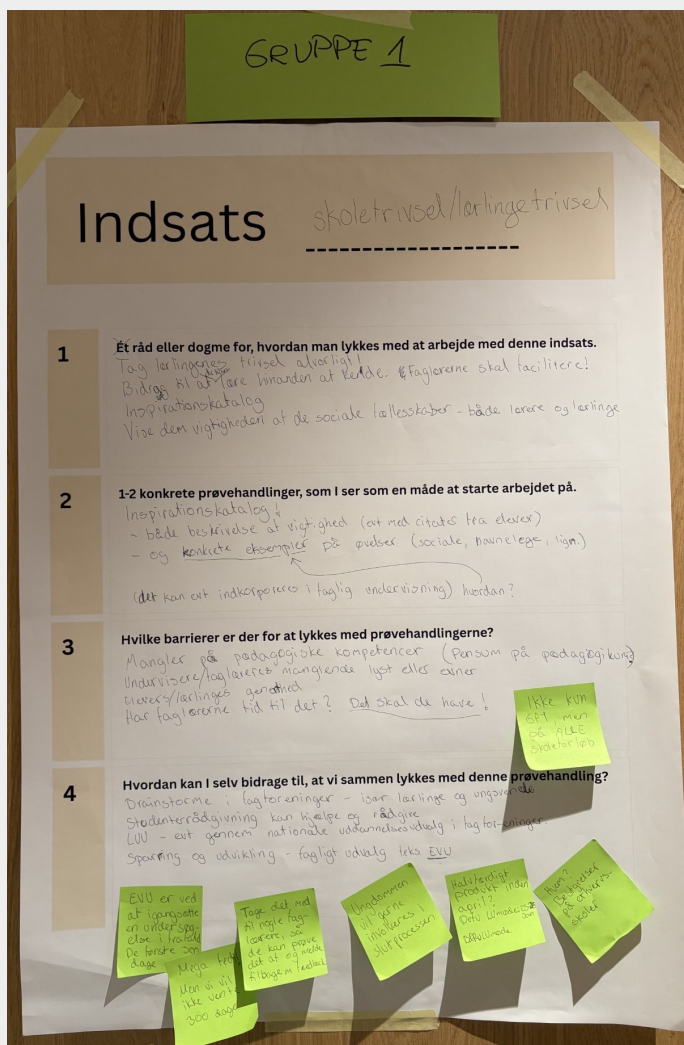 GRUPPE 1
Indsats skoletrivsel/lærlingetrivsel
1
Ét råd eller dogme for, hvordan man lykkes med at arbejde med denne indsats.
Tag lærlingenes trivsel alvorligt!
Bidrag til at lære hinanden at kende. Faglærerne skal facilitere!
Inspirationskatalog
Vise dem vigtigheden af de sociale fællesskaber - både lærere og lærlinge
2
1-2 konkrete prøvehandlinger, som I ser som en måde at starte arbejdet på.
Inspirationskatalog!
- både beskrivelse af vigtighed (evt med citater fra elever)
- og konkrete eksempler på øvelser (sociale, navnelege, lign.)
(det kan evt indkorporeres i faglig undervisning) hvordan?
3
Hvilke barrierer er der for at lykkes med prøvehandlingerne?
Mangler på pædagogiske kompetencer (Pensum på pædagogikum)
Undervisere/faglæreres manglende lyst eller evner
Elevers/lærlinges generthed
Har faglærerne tid til det? Det skal de have!
Ikke kun
GF1, men
på ALLE
skoleforløb
4
Hvordan kan I selv bidrage til, at vi sammen lykkes med denne prøvehandling?
Brainstorme i fagforeninger - især lærlinge og ungsvende
Studenterrådgivning kan hjælpe og rådgive
LUU - evt gennem nationale uddannelsesudvalg i fagforeninger
Sparring og udvikling - fagligt udvalg feks EVU
EVU er ved
at igangsætte
en undersøg-
else i frafald
De første 100
dage
Mega fedt
Men vi vil
ikke vente
300 dage
Tage det med
til nogle fag-
lærere, så
de kan prøve
det af og melde
tilbage m feedback
Ungdommen
vil gerne
involveres i
slutprocessen
Halvfærdigt
produkt inden
april?
Hvem?
Bestyrelser
på erhvervs-
skoler